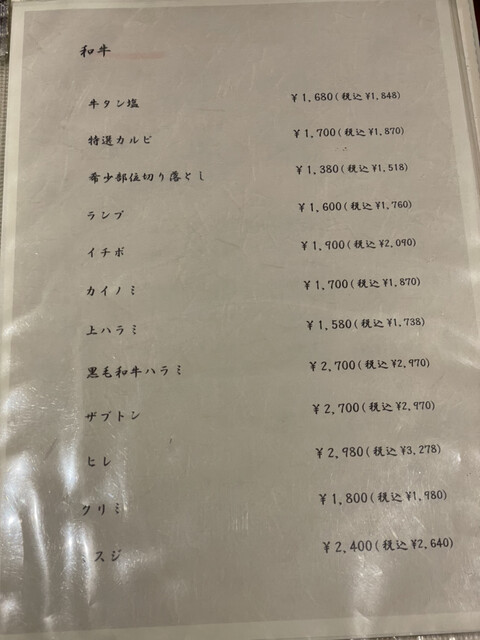 和牛
牛タン塩 ¥1,680(税込¥1,848)
特選カルビ ¥1,700(税込¥1,870)
希少部位切り落とし ¥1,380(税込¥1,518)
ランプ ¥1,600(税込¥1,760)
イチボ ¥1,900(税込¥2,090)
カイノミ ¥1,700(税込¥1,870)
上ハラミ ¥1,580(税込¥1,738)
黒毛和牛ハラミ ¥2,700(税込¥2,970)
ザブトン ¥2,700(税込¥2,970)
ヒレ ¥2,980(税込¥3,278)
クリミ ¥1,800(税込¥1,980)
スジ ¥2,400(税込¥2,640)